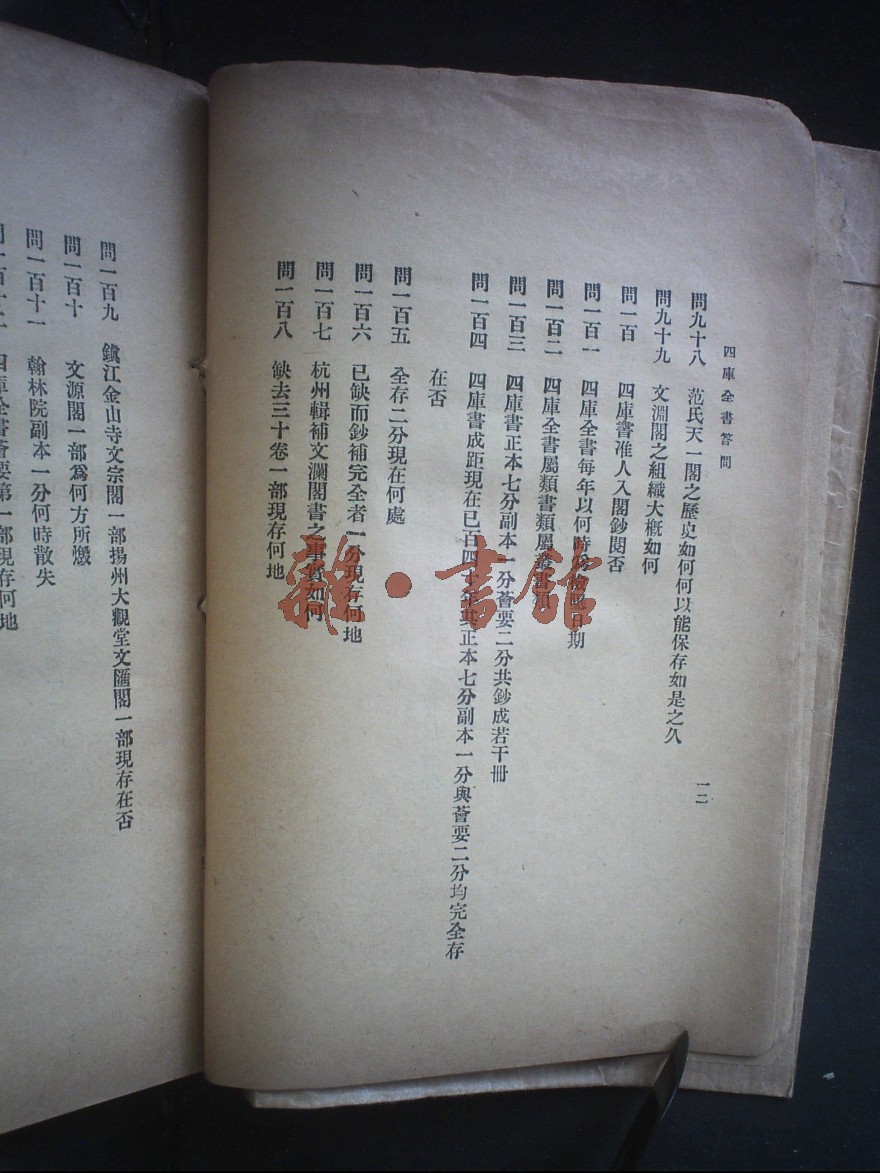 四庫全書答問
一二
問九十八　范氏天一閣之歷史如何何以能保存如是之久
問九十九　文淵閣之組織大槪如何
問一百　四庫書准人入閣鈔閱否
問一百一　四庫全書每年以何時爲曝日期
問一百二　四庫全書屬類書類屬叢書類
問一百三　四庫書正本七分副本一分薈要二分共鈔成若干冊
問一百四　四庫書成距現在已百四十年其正本七分副本一分與薈要二分均完全存
在否
問一百五　全存二分現在何處
問一百六　已缺而鈔補完全者一分現存何地
問一百七　杭州輯補文瀾閣書之事實如何
問一百八　缺去三十卷一部現存何地
問一百九　鎭江金山寺文宗閣一部揚州大觀堂文匯閣一部現存在否
問一百十　文源閣一部爲何方所燬
問一百十一　翰林院副本一分何時散失
四庫全書薈要第一部現存何地
雜·書館